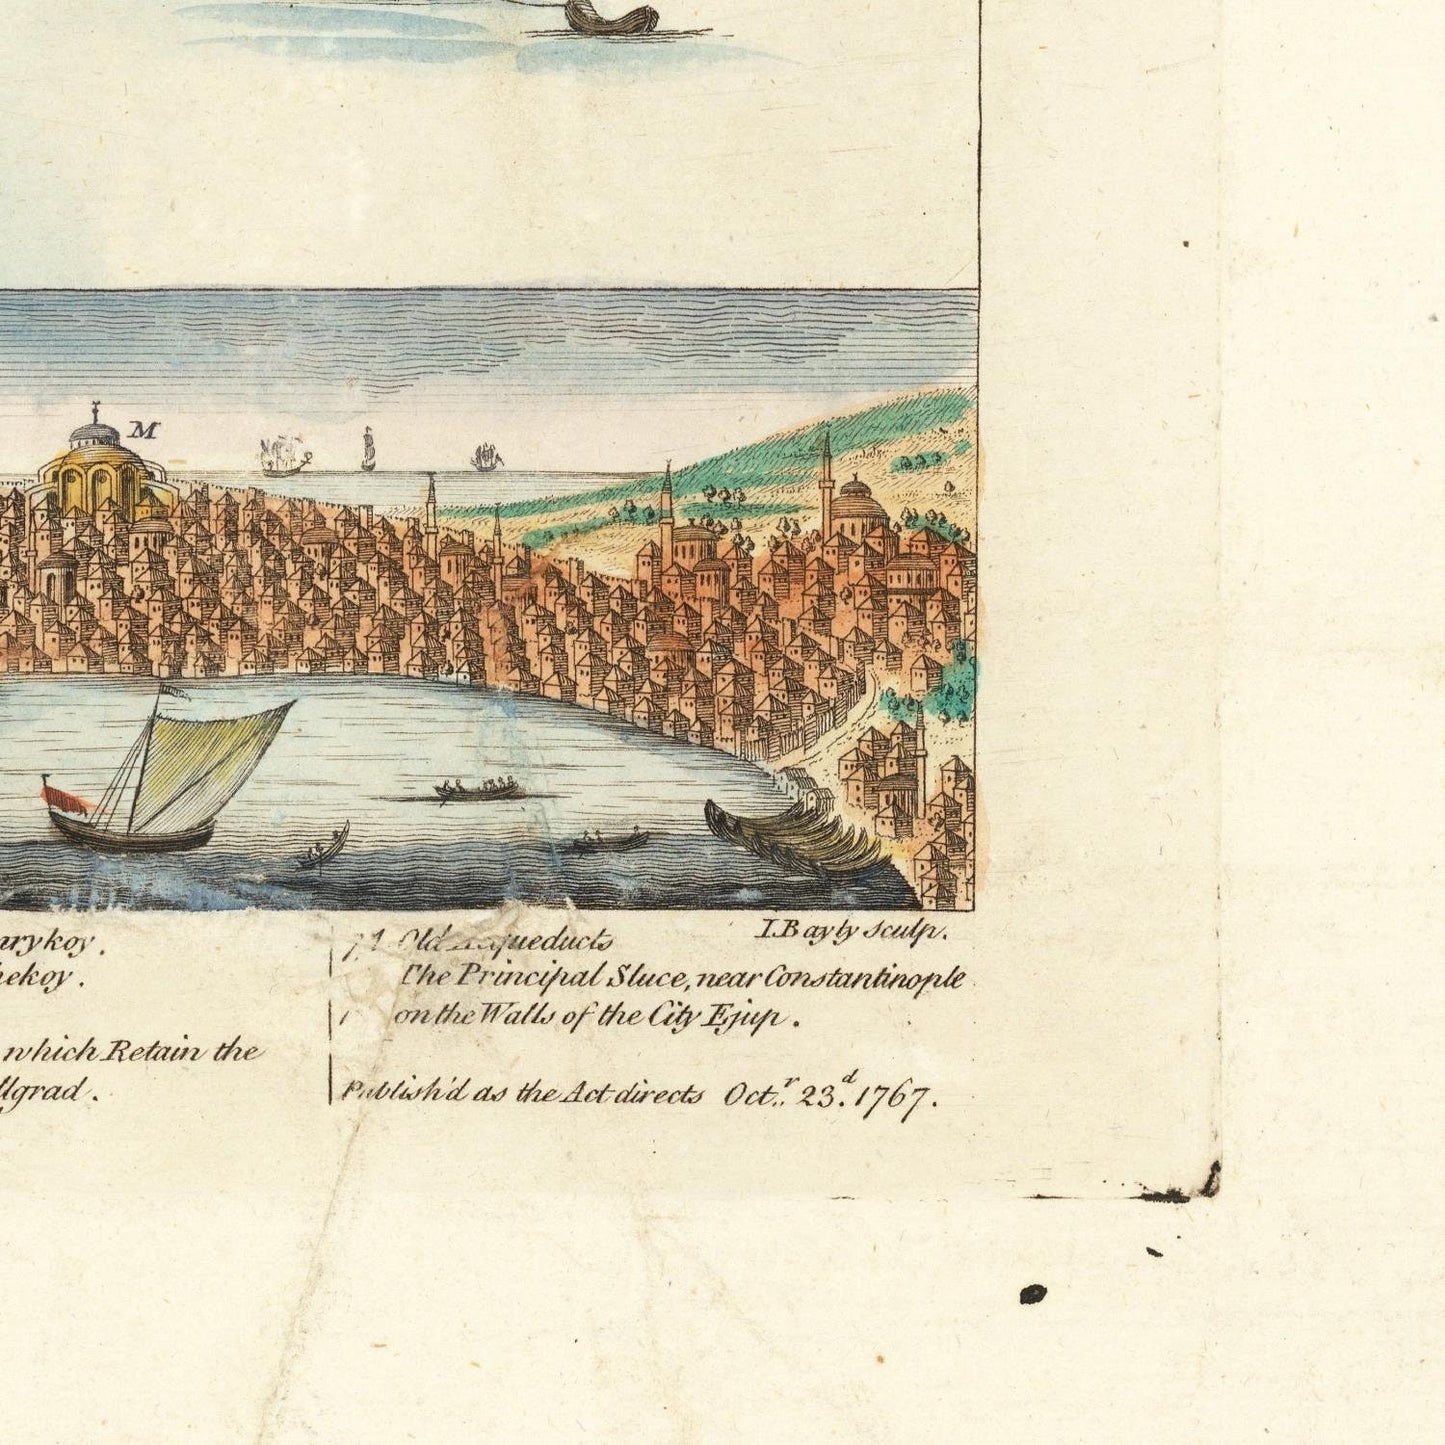 M
I.Bayly sculp.
arykoy.
hekoy.
which Retain the
llgrad.
71 Old Aqueducts
The Principal Sluce, near Constantinople
on the Walls of the City Ejup.
Publish'd as the Act directs Octr. 23d. 1767.